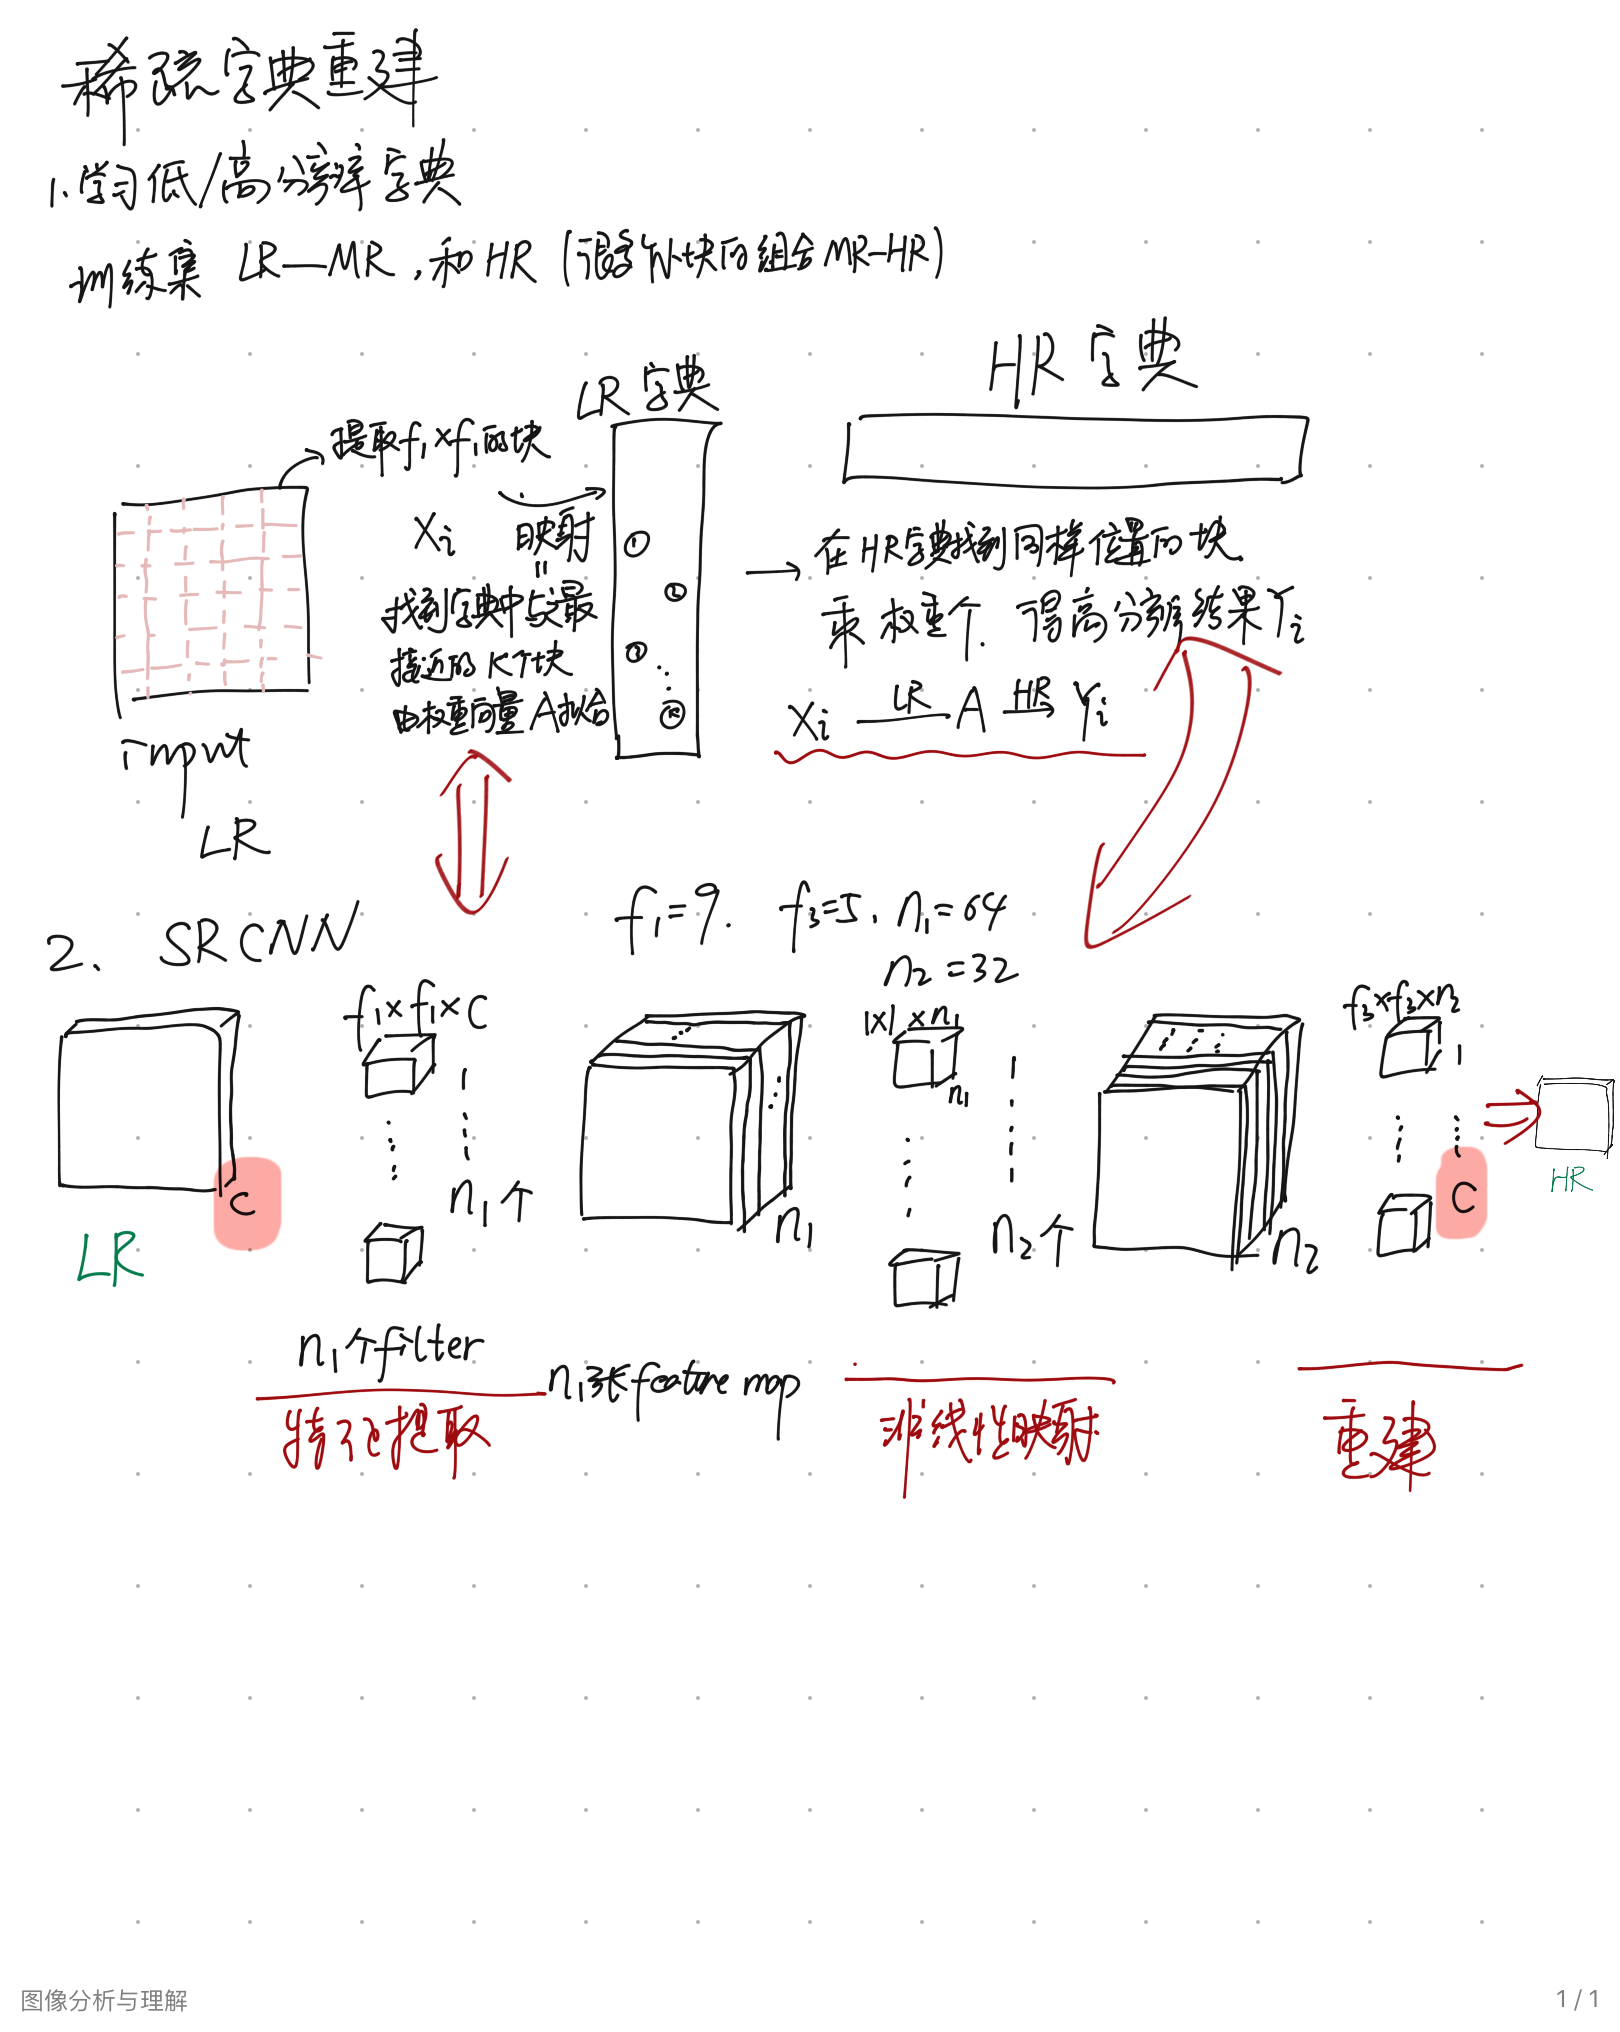 稀疏字典重建
1.学习低/高分辨率字典
训练集 LR—MR,和HR(块的组合MR—HR)
HR 字典
LR 字典
提取f₁×f₁的块
Xi 映射
=
找到字典中与最
接近的K个块
由权重向量A拟合
① ② ③ ⋮ Ⓚ
→ 在HR字典找到同样位置的块.
乘权重个. 得高分辨结果Yi
Xi —LR→ A —HR→ Yi
input
LR
2. SRCNN
f₁=9. f₃=5, n₁=64
n₂=32
f₁×f₁×C
1×1×n₁
f₃×f₃×n₂
n₁
C
n₁个
n₁
n₂个
n₂
C
LR
HR
n₁个filter
n₁张feature map
特征提取
非线性映射
重建
图像分析与理解
1 / 1